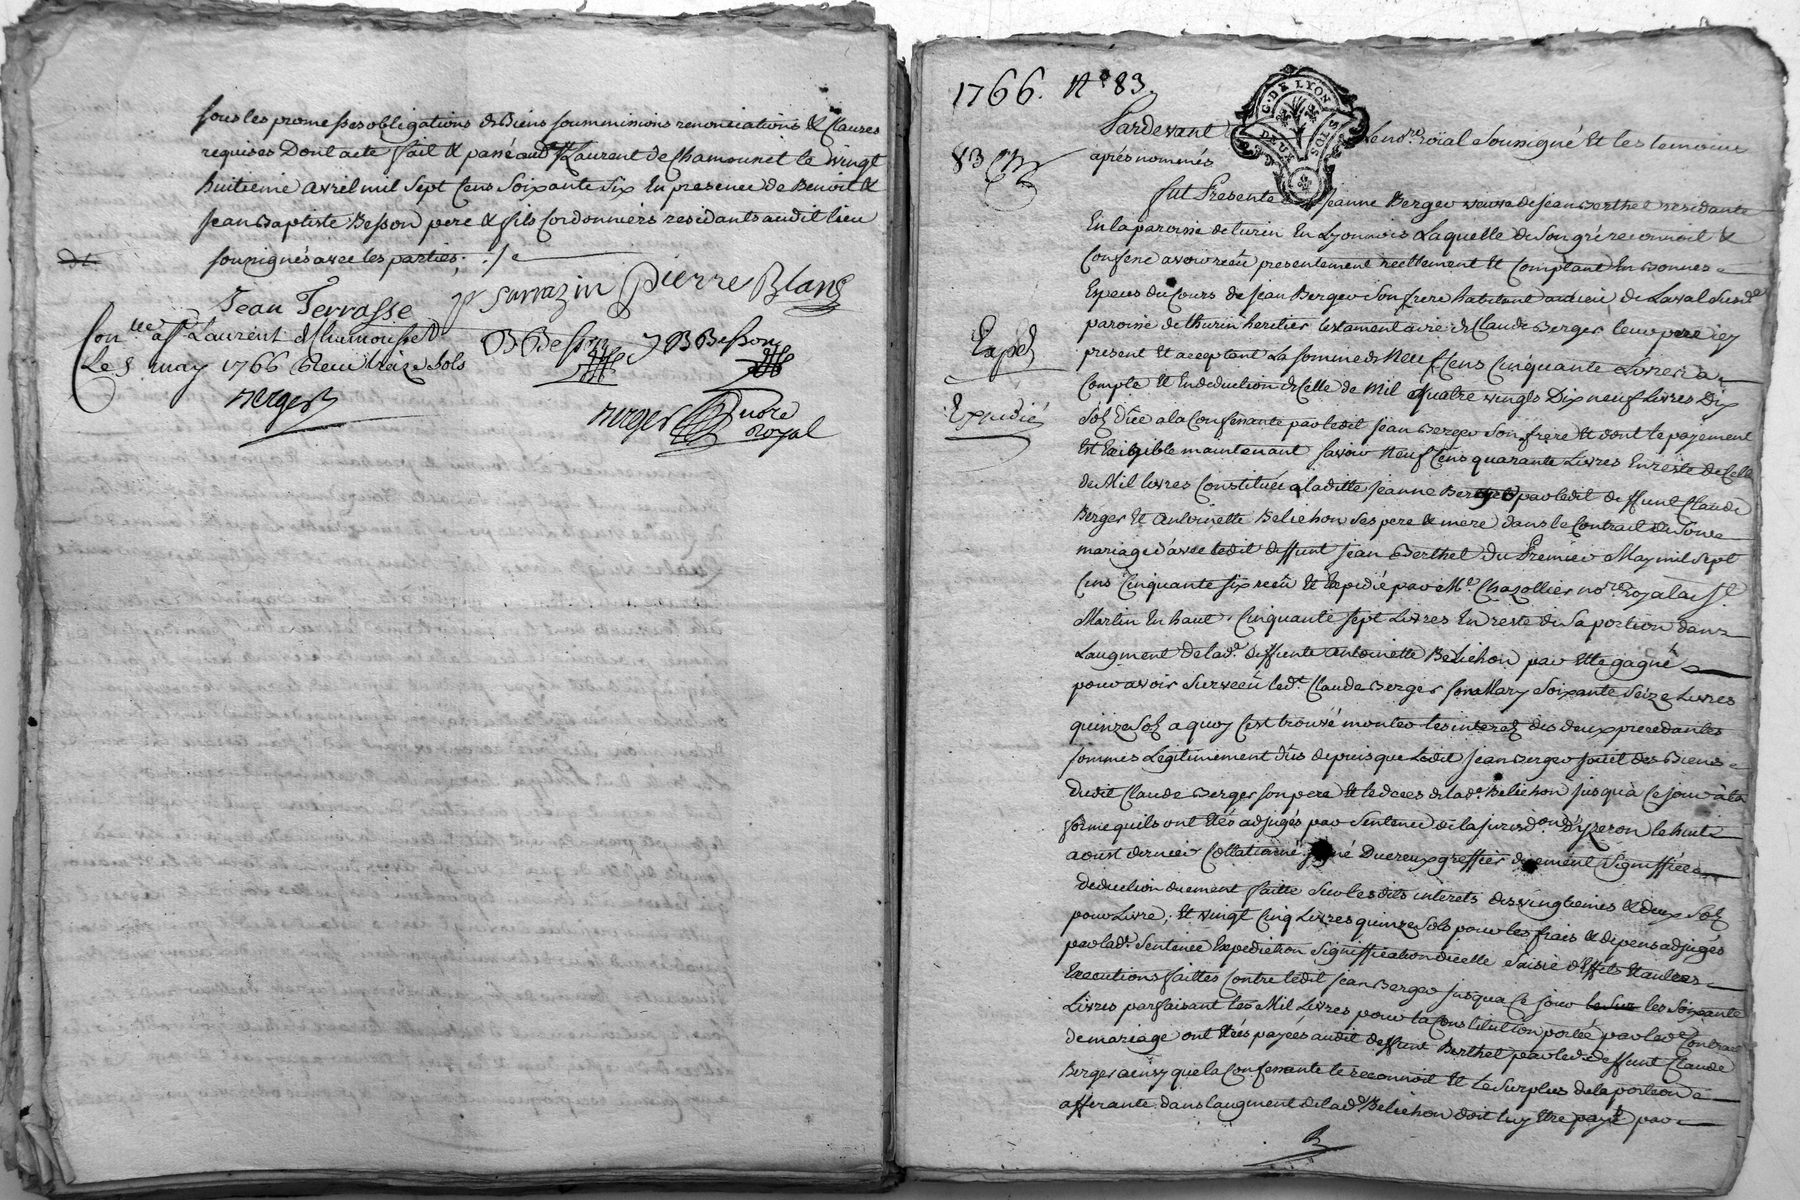 sous les promesses obligations de Biens soummissions renonciations & Clauses
requises Dont acte fait & passé aud. St Laurent de Chamousset le vingt
huitieme avril mil sept Cens soixante six En presence de Benoit &
Jean Baptiste Besson pere & fils Cordonniers residants audit lieu
soussignés avec les parties
Jean Terrasse
sarrazin
pierre Blanc
B Besson
J B Besson
Con. lee a St Laurent de chamousset
Le 8 may 1766 Reçu treize sols
verger
verger
notre
Royal
1766. N° 83.
G. DE LYON
DEUX SOLS
83
Pardevant Le no.re roïal soussigné Et les temoins
après nommés
fut Presente Jeanne Berger veuve de Jean Berthet residante
En la paroisse de turin En Lyonnois Laquelle de son gré reconnoit &
Confesse avoir reçeu presentement reellement Et Comptant En Bonnes
Especes du Cours de Jean Berger son frere habitant au lieu de Laval susd.e
paroisse de thurin heritier testamentaire de Claude Berger leur pere icy
present Et acceptant La somme de Neuf Cens Cinquante Livres a
Compte Et En deduction de Celle de Mil quatre vingts Dix neuf Livres Dix
Expedié
sols Düe a la Confessante par ledit Jean Berger son frere Et dont le payement
Est Exigible maintenant savoir Neuf Cens quarante Livres En reste de Celle
de Mil livres Constituée a laditte Jeanne Berger par ledit deffunt Claude
Berger Et antoinette Belichon ses pere & mere dans le Contrat de son
mariage d'avec ledit deffunt Jean Berthet du Premier May mil sept
Cens Cinquante six reçû Et Expedié par Me. Chazollier no.re royal a St.
Martin En haut. Cinquante sept Livres En reste de sa portion dans
Laugment de lad.e deffunte antoinette Belichon par Elle gagné
pour avoir survecu led.t Claude Berger son Mary Soixante seize Livres
quinze sols a quoy s'est trouvé monter les interets des deux precedantes
sommes Legitimement Dûs depuis que Ledit Jean Berger jouit des Biens
dudit Claude Berger son pere Et le deces de lad.e Belichon jusqu'à ce jour à la
forme quils ont Etés adjugés par sentence de la jurisd.on d'yzeron le huit
aoust dernier Collationné signé Ducreux greffier duement signiffiée
deduction duement faitte sur lesdits interets des vingtiemes & deux sols
pour Livre; Et vingt Cinq Livres quinze sols pour les frais & dépens adjugés
par lad.e sentence Expedition signiffication d'icelle saisie d'Effets Et autres
Executions faittes Contre ledit Jean Berger jusqua ce jour les soixante
Livres parfaisant les Mil Livres pour la Constitution portée par led. Contrat
de mariage ont Etés payées audit deffunt Berthet par led. deffunt Claude
Berger ainsy que la Confessante le reconnoit Et le surplus de la portion
afferante dans laugment de lad.e Belichon doit luy Etre payé par